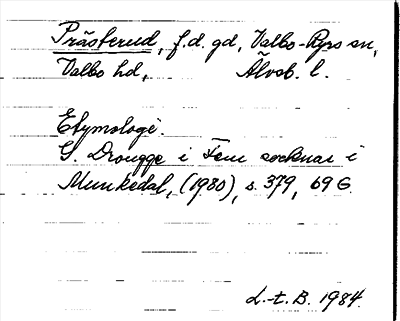 Prästerud, f.d. gd, Valbo-Ryrs sn,
Valbo hd, Älvsb. l.
Etymologi.
G. Drougge i Fem socknar i
Munkedal, (1980), s. 379, 69 G
L.-t. B. 1984.